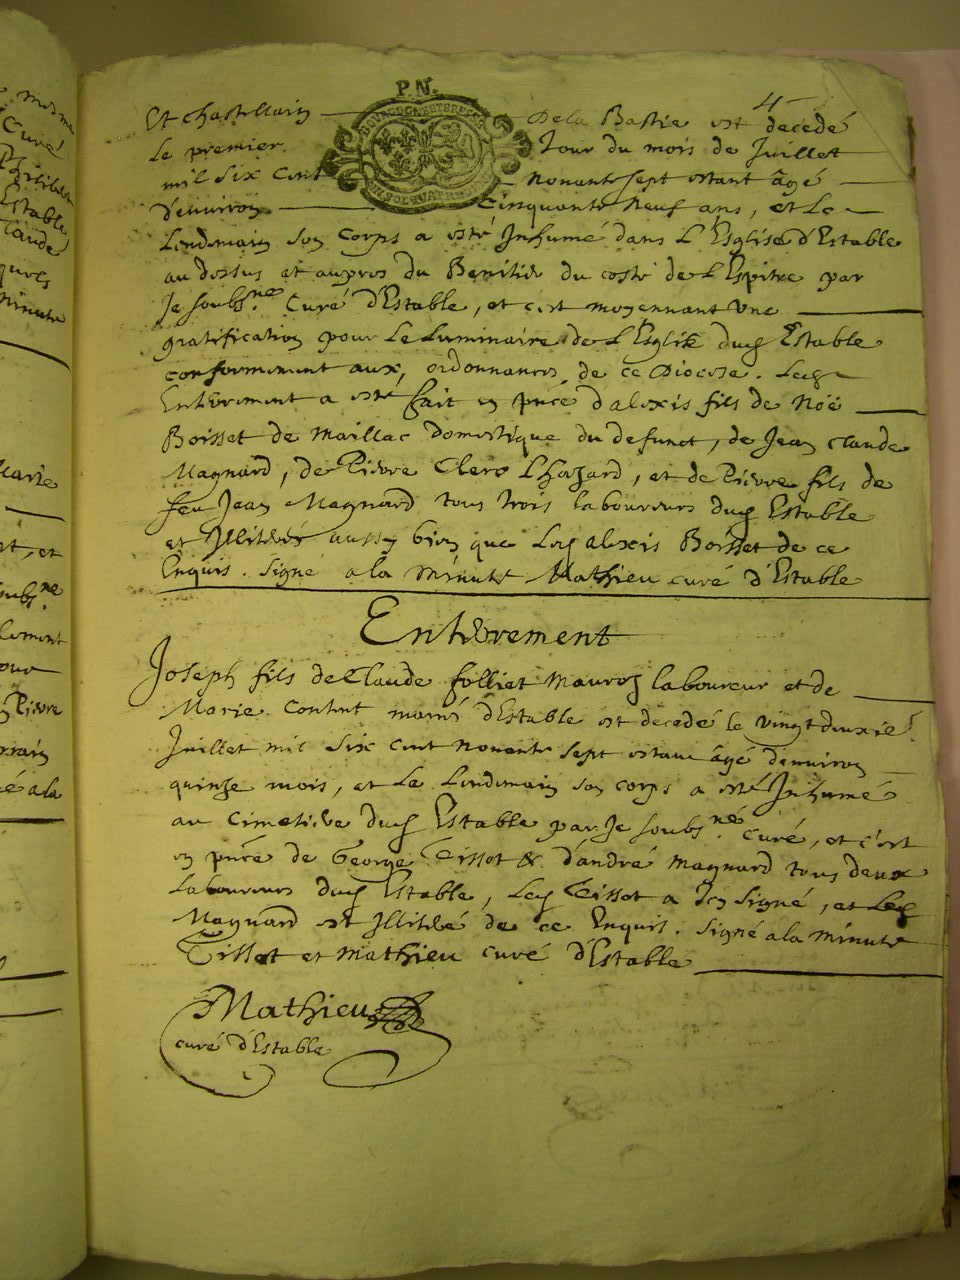 P. N.
4
Et chastellain De la Bastie est decedé
le premier Jour du mois de Juillet
mil six cent nonante sept estant âgé
d'environ cinquante neuf ans, et le
Lendemain son corps a esté Inhumé dans L'Esglise d'Estable
au dessus et aupres du Benitier du costé de L'Epitre par
Je soubs.né Curé d'Estable, et c'est moyennant une
gratification pour Le Luminaire de L'Esglise dud Estable
conformement aux, ordonnances de ce Diocese. Led
Enterrement a esté fait en pnce d'alexis fils de Noë
Boisset de Maillac Domestique du defunct, de Jean claude
Magnard, de Pierre Clerc Lhozard, et de Pierre fils de
feu Jean Magnard tous trois laboureurs dud Estable
et Illiterés aussy bien que Led alexis Boisset de ce
Enquis. Signé a la minute Mathieu curé d'Estable
Enterrement
Joseph fils de Claude folliet Mauroz laboureur et de
Marie Contat mariés d'Estable est decedé le vingt deuxie.
Juillet mil six cent nonante sept estant âgé d'environ
quinze mois, et Le Lendemain son corps a esté Inhumé
au cimetiere dud Estable par Je soubs.né Curé, et c'est
en pnce de George Tissot & d'andré Magnard tous deux
Laboureurs dud Estable, Led Tissot a Icy signé, et Led
Magnard est Illiteré de ce Enquis. Signé a la minute
Tissot et Mathieu curé d'Estable
Mathieu
curé d'Estable